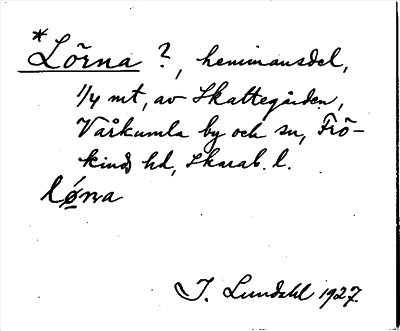 *Lörna ?, hemmansdel,
1/4 mt, av Skattegården,
Vårkumla by och sn, Frö-
kinds hd, Skarab. l.
lǿrna
I. Lundahl 1927.